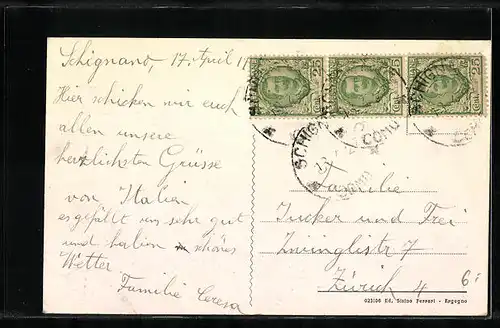 Schignano, 17. April
Hier schicken wir euch
allen unsere
herzlichsten Grüsse
von Italien
es gefällt uns sehr gut
und haben schönes
Wetter
Familie Ceresa
25 25 25
SCHIGNANO
COMO
Familie
Tucker und Frei
Zwinglistr 7
Zürich 4
6
023106 Ed. Sisino Ferrari - Argegno